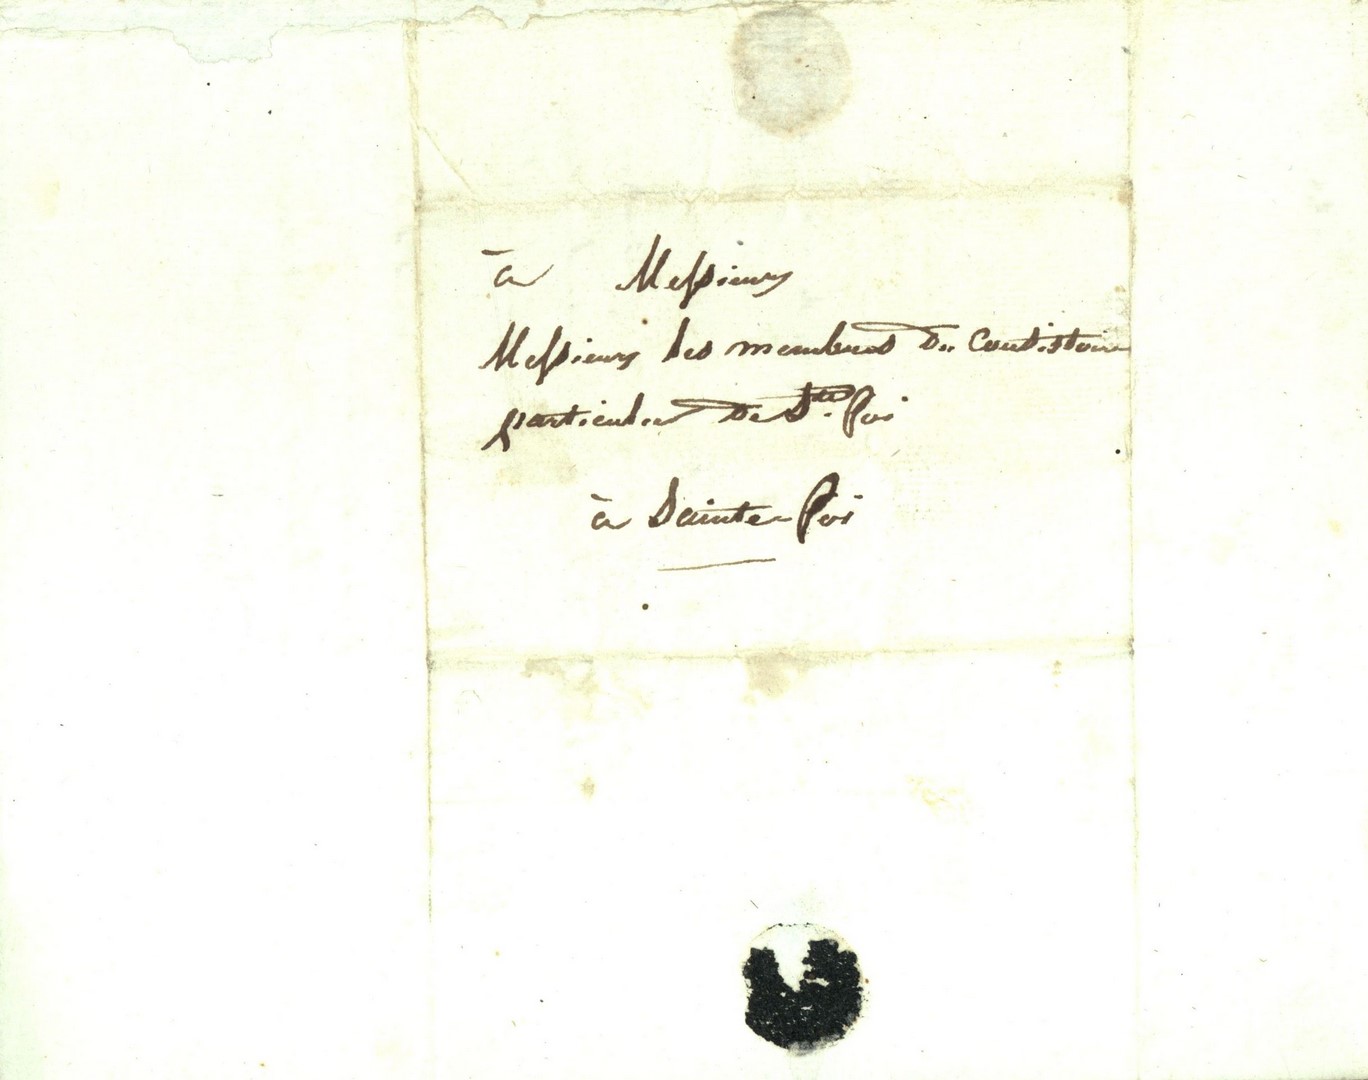 à Messieurs
Messieurs les membres du Consistoire
particulier de Ste. Foi
à Sainte-Foi